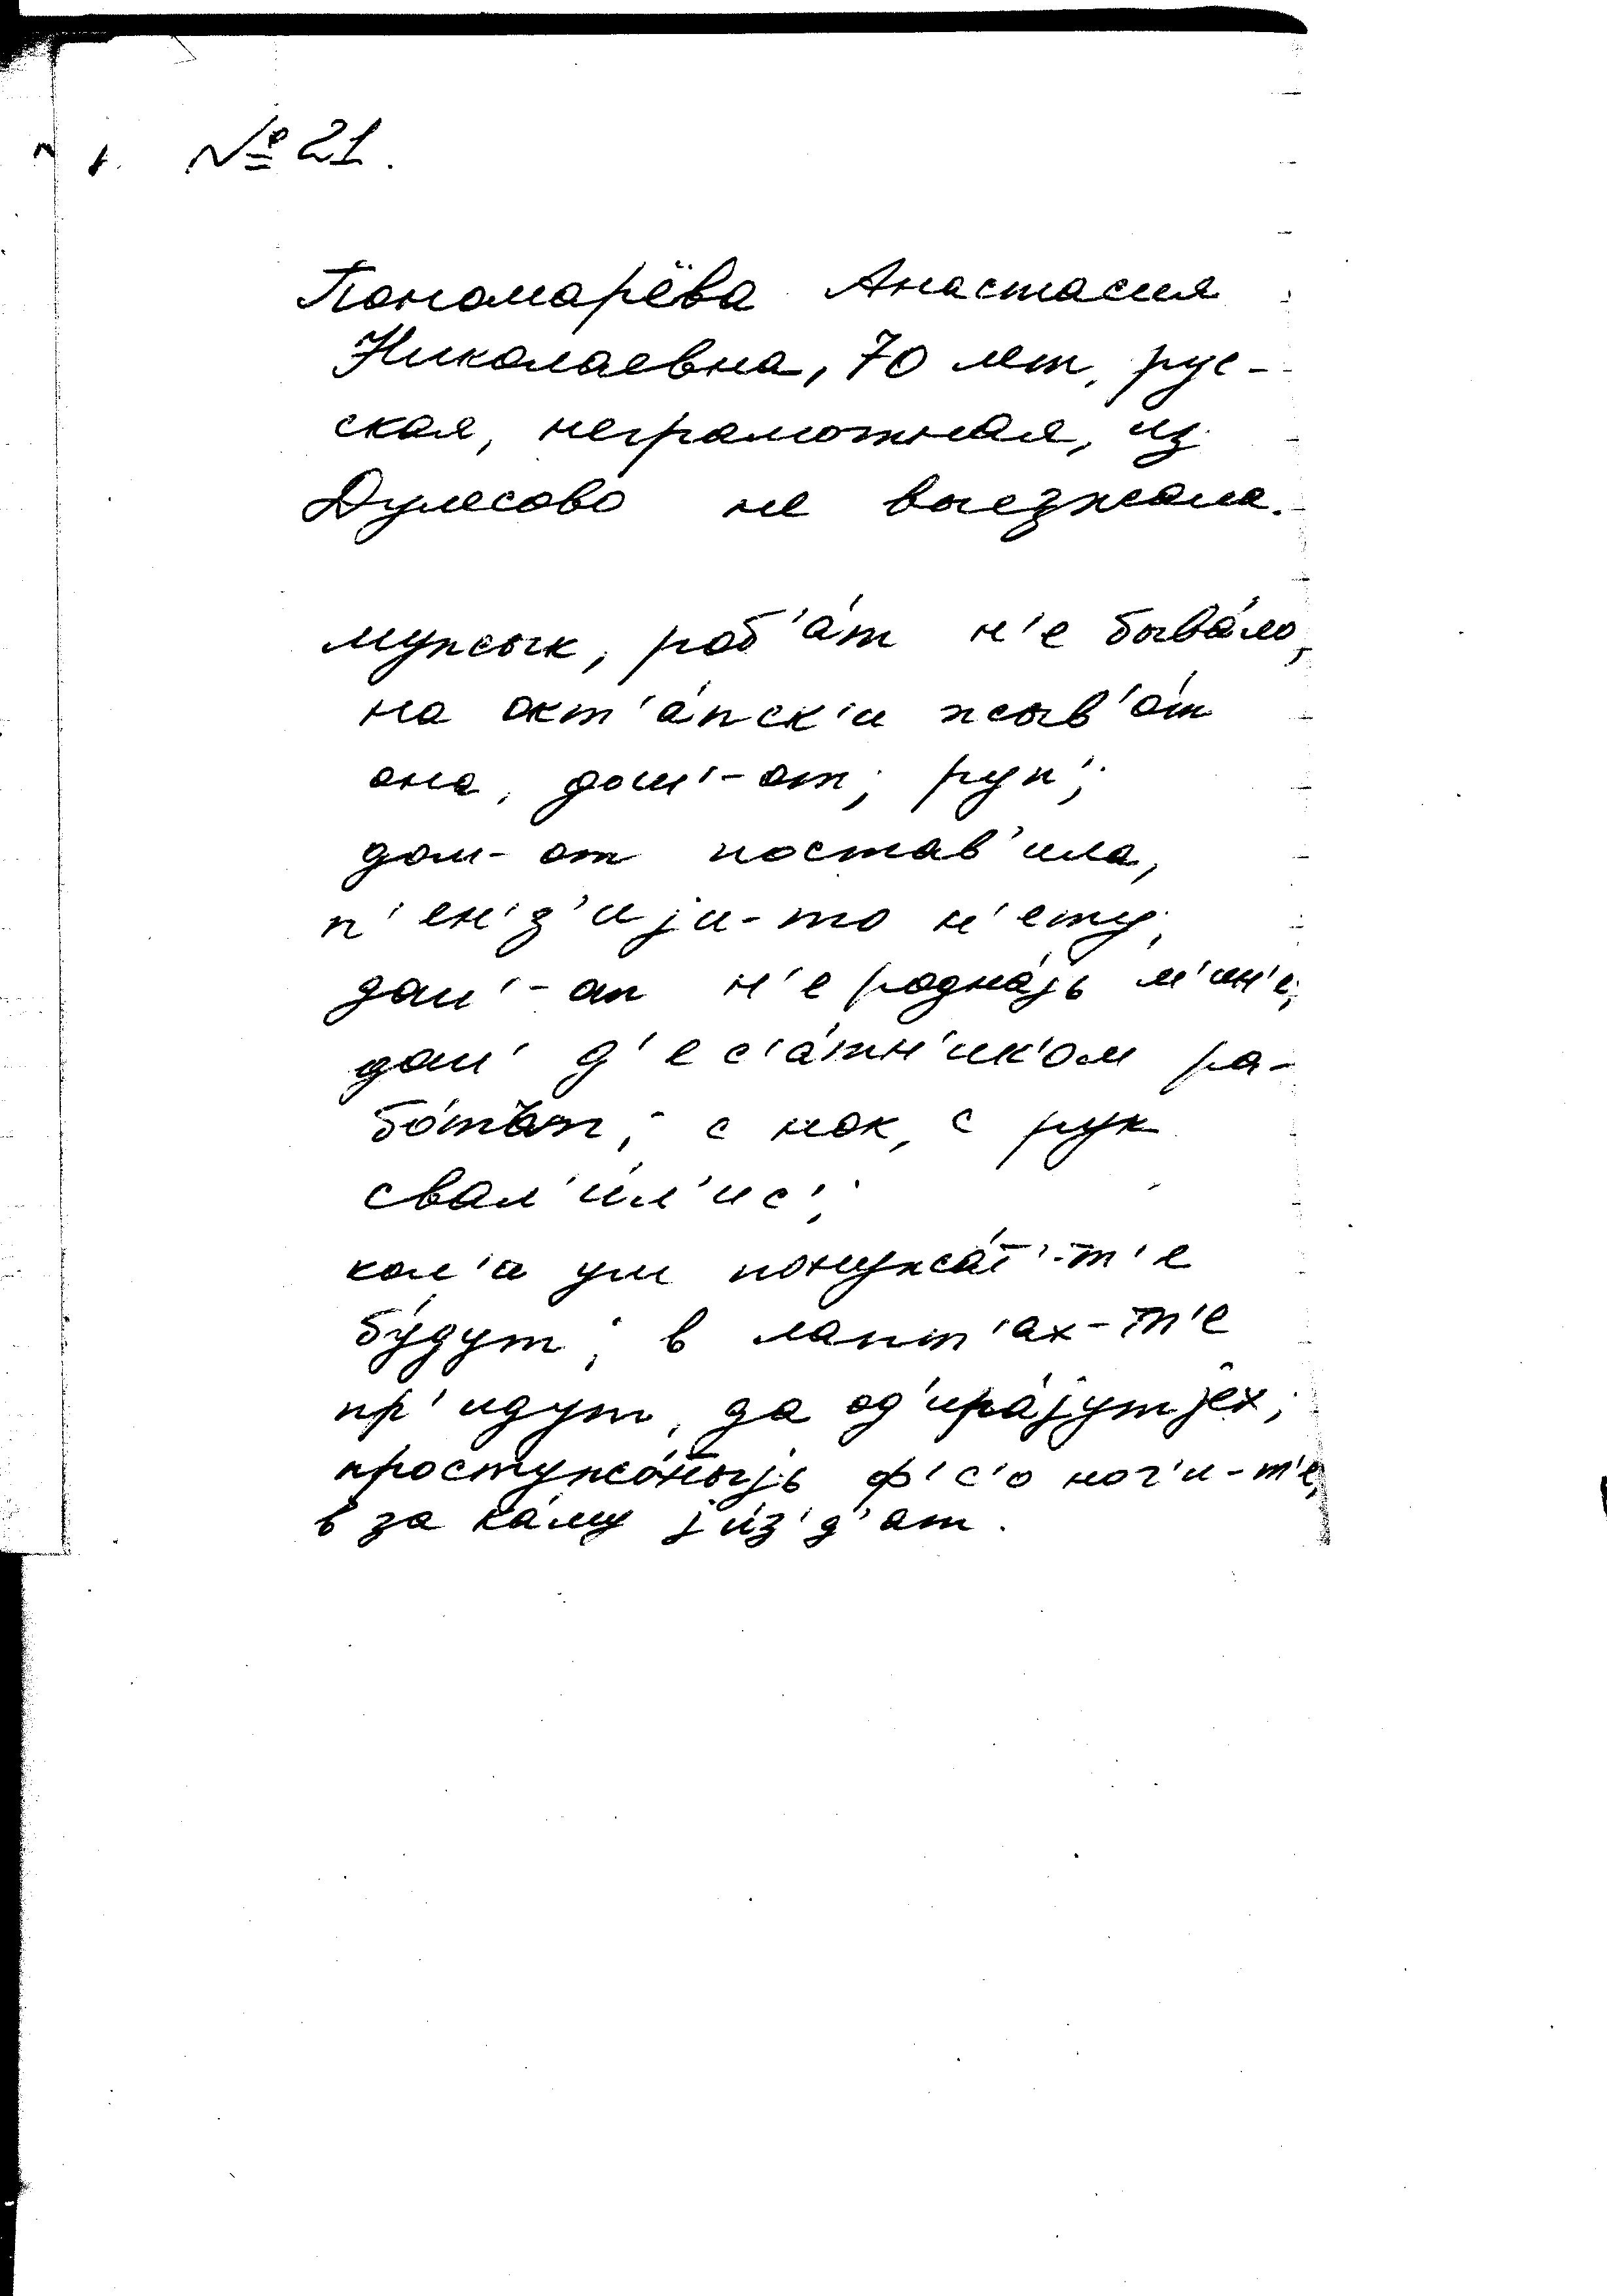 № 21.
Пономарёва Анастасия
Николаевна, 70 лет, рус-
ская, неграмотная, из
Дулесово не выезжала.
мужык, роб'а́т н'е быва́ло,
на окт'а́пск'и жыв'о́т
она, дош'-от; руп';
дом-от постав'ила,
п'ен'з'иjи-то н'ету;
дош'-от н'е родна́jъ м'ин'е;
дош' д'ес'а́тн'ик'ом ра-
бо́тът; с нок, с рук
свал'и́л'ис';
кол'и уш понужа́т'-т'е
бу́дут; в лапт'ах-т'е
пр'идут, да од'ира́jут jех;
простужо́ныjъ ф'с'о ног'и-т'е,
в за ка́му jи́з'д'ат.